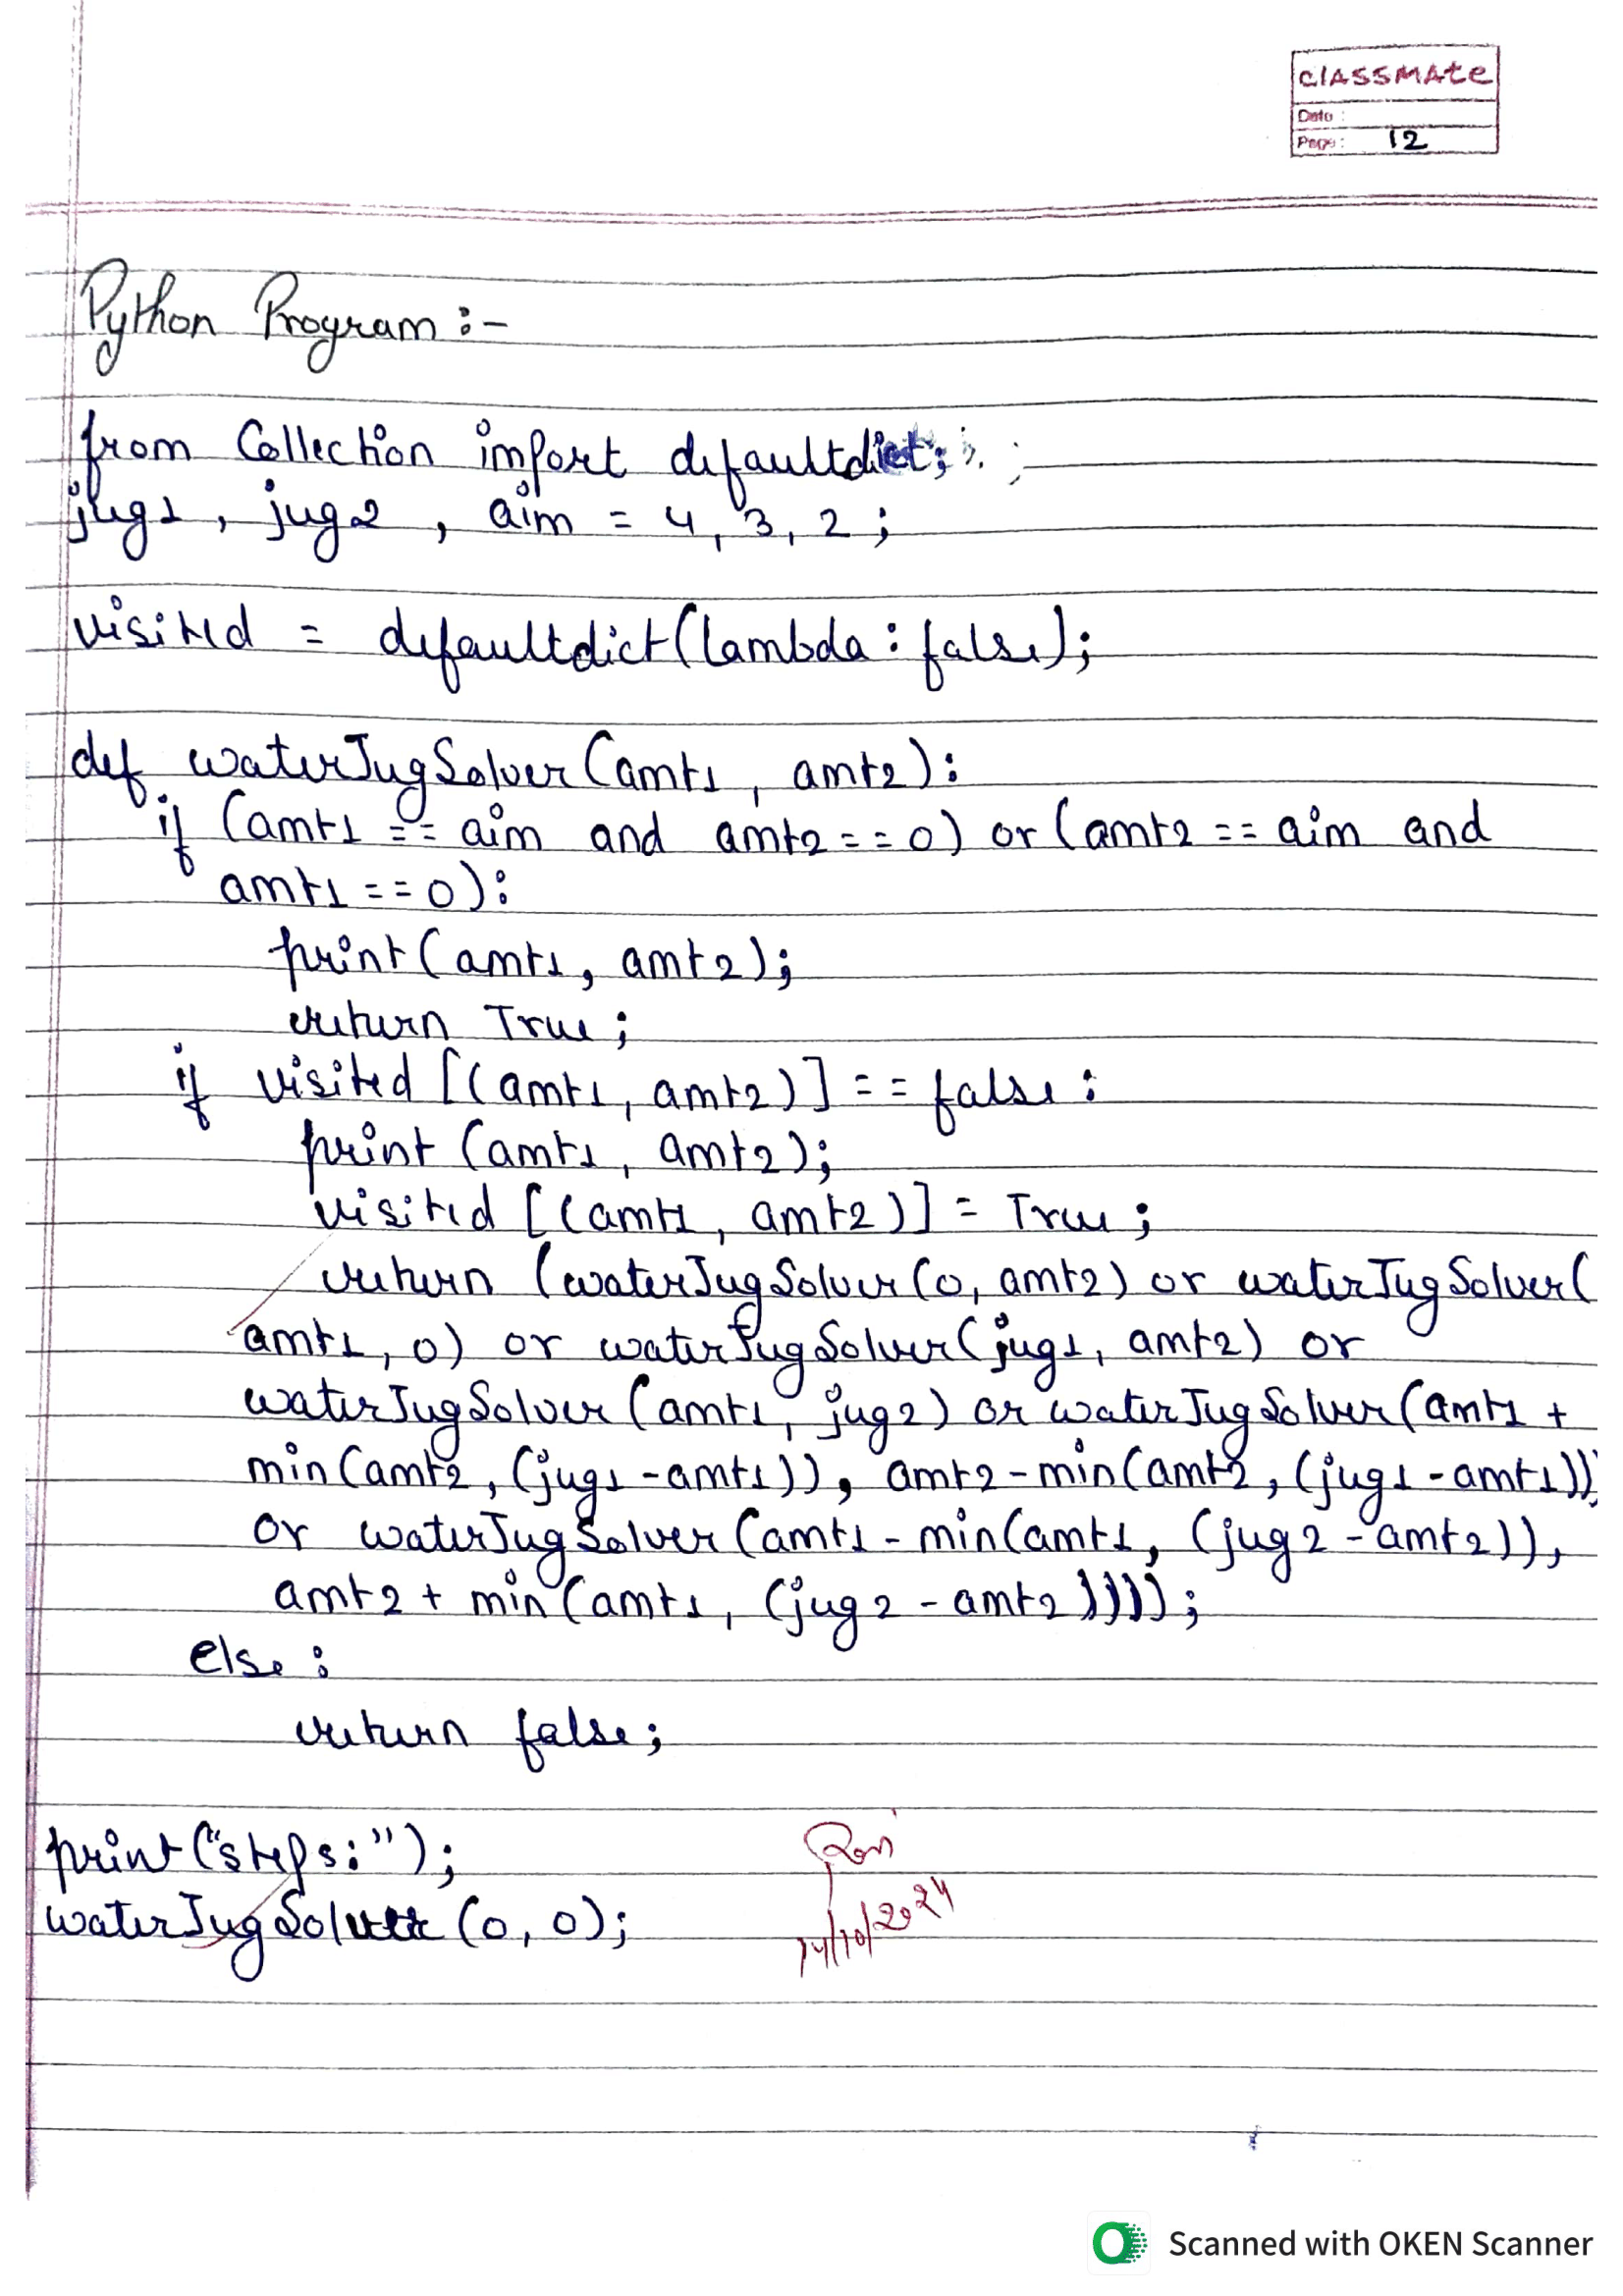 classmate
Date :
Page : 12
Python Program :-
from Collection import defaultdict;
jug1, jug2, aim = 4, 3, 2;
visited = defaultdict(lambda : false);
def waterJugSolver(amt1, amt2):
if (amt1 == aim and amt2 == 0) or (amt2 == aim and
amt1 == 0):
print(amt1, amt2);
return True;
if visited [(amt1, amt2)] == false :
print (amt1, amt2);
visited [(amt1, amt2)] = True;
return (waterJugSolver(0, amt2) or waterJugSolver(
amt1, 0) or waterJugSolver(jug1, amt2) or
waterJugSolver(amt1, jug2) or waterJugSolver(amt1 +
min(amt2, (jug1-amt1)), amt2-min(amt2, (jug1-amt1)))
or waterJugSolver(amt1-min(amt1, (jug2-amt2)),
amt2 + min(amt1, (jug2-amt2))));
else :
return false;
print("steps:");
waterJugSolver(0, 0);
14/10/2024
Scanned with OKEN Scanner